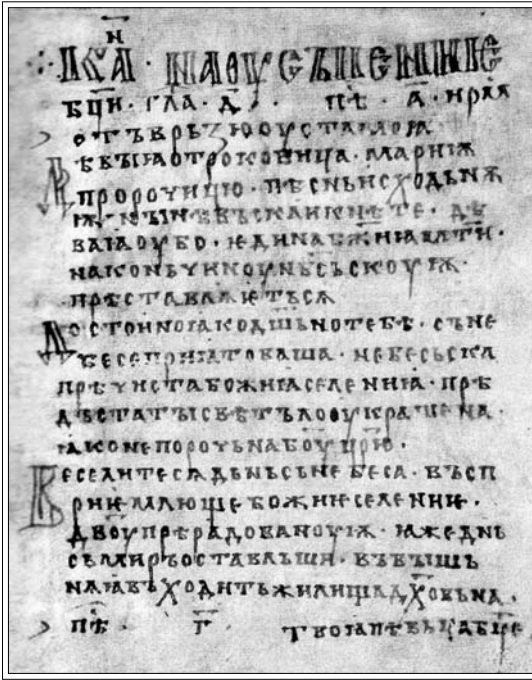 · КА҃Н · НАОУСЪПЕНИѤ
БЦ҃И · ГЛА · Д҃ · ПѢ · А҃ · ИРМ
ОТЪВРЬЗЮОУСТАМОꙖ
ДѢВЫꙖОТРОКОВИЦА · МАРИѨ
ПРОРОЧИЦЮ · ПѢСНЬИСХОДЬНѪ
Ѭ · НЫНѢВЪСКЛИКНѢТЕ · ДѢ
ВАꙖОУБО · ѤДИНАБЖ҃ИꙖМТ҃И ·
НАКОНЬЧИНОУНБ҃СЬСКОУѬ ·
ПРѢСТАВЛѨѤТЬСѦ
ДОСТОИНОꙖКОДШ҃ЬНОТЕБЕ · СЪНЕ
БЕСЕПРИꙖТОВАША · НЕБЕСЬСКА
ПРѢЧИСТАБОЖИꙖСЕЛЕНИꙖ · ПРѢ
ДЪСТАТЫСВѢТЪЛООУКРАШЕНА ·
ꙖКОНЕПОРОЧЬНАБОУЦР҃Ю ·
ВЕСЕЛИТЕСѦДЬНЬСЬНЕБЕСА · ВЪСП
РИѤМЛЮЩЕБОЖИѤСЕЛЕНИѤ ·
ДВОУПРѢРАДОВАНОУѬ · ꙖЖЕДНЬ
СЬМИРЪОСТАВЛЬШИ · ВЪВЫШЬ
НꙖꙖВЪХОДИТЬЖИЛИЩАДХ҃ОВЬНА ·
ПѢ · Г҃ ТВОꙖПѢВЬЦАБЦ҃Е